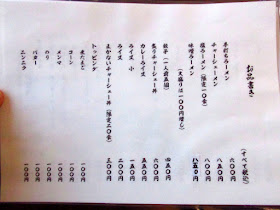 お品書き (すべて税込)
手打ちラーメン 六〇〇円
チャーシューメン 八〇〇円
塩ラーメン(限定一〇食) 八〇〇円
味噌ラーメン 八五〇円
(大盛りは一〇〇円増し)
餃子(一人前五個) 四五〇円
チャーシュー丼 六〇〇円
カレーライス 五五〇円
ライス 小 一五〇円
ライス 二〇〇円
まかないチャーシュー丼(限定二〇食) 三〇〇円
トッピング
生たまご 一〇〇円
コーン 一〇〇円
メンマ 一〇〇円
のり 一〇〇円
バター 一〇〇円
ニンニク 一〇〇円